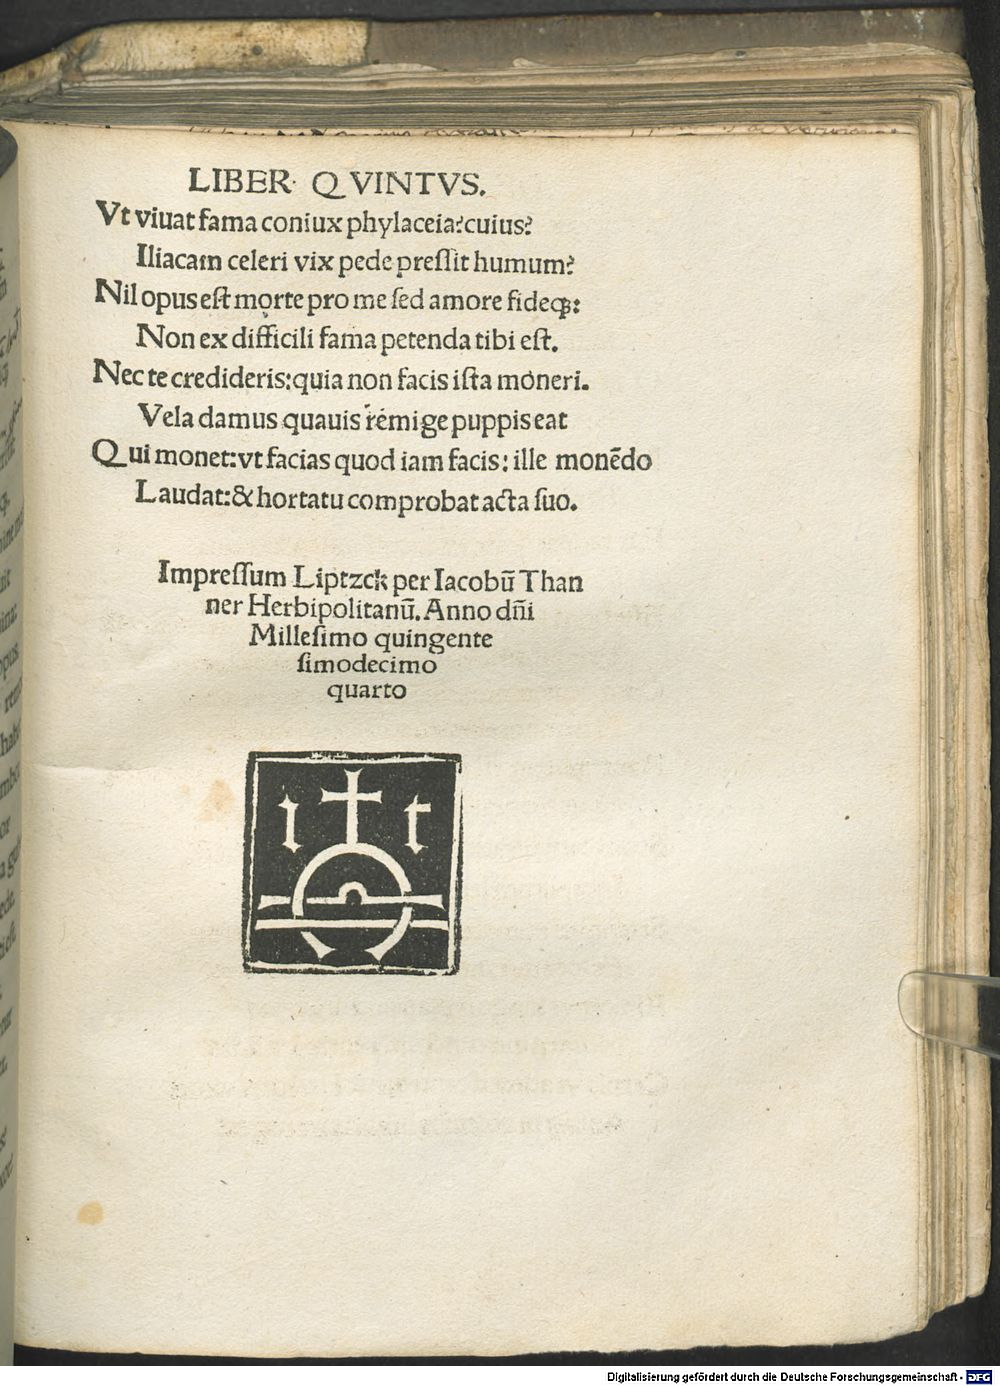 LIBER· QVINTVS.
Vt viuat fama coniux phylaceia?cuius?
Iliacam celeri vix pede preſſit humum?
Nil opus eſt morte pro me ſed amore fideqꝫ:
Non ex difficili fama petenda tibi eſt.
Nec te credideris:quia non facis iſta moneri.
Vela damus quauis remige puppis eat
Qui monet:vt facias quod iam facis: ille monēdo
Laudat:& hortatu comprobat acta ſuo.
Impreſſum Liptzck per Iacobū Than
ner Herbipolitanū. Anno dn̄i
Milleſimo quingente
ſimodecimo
quarto
i t
Digitalisierung gefördert durch die Deutsche Forschungsgemeinschaft - DFG